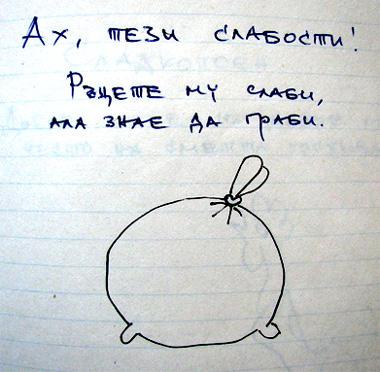 Ах, тези слабости!
Ръцете му слаби,
ала знае да граби.